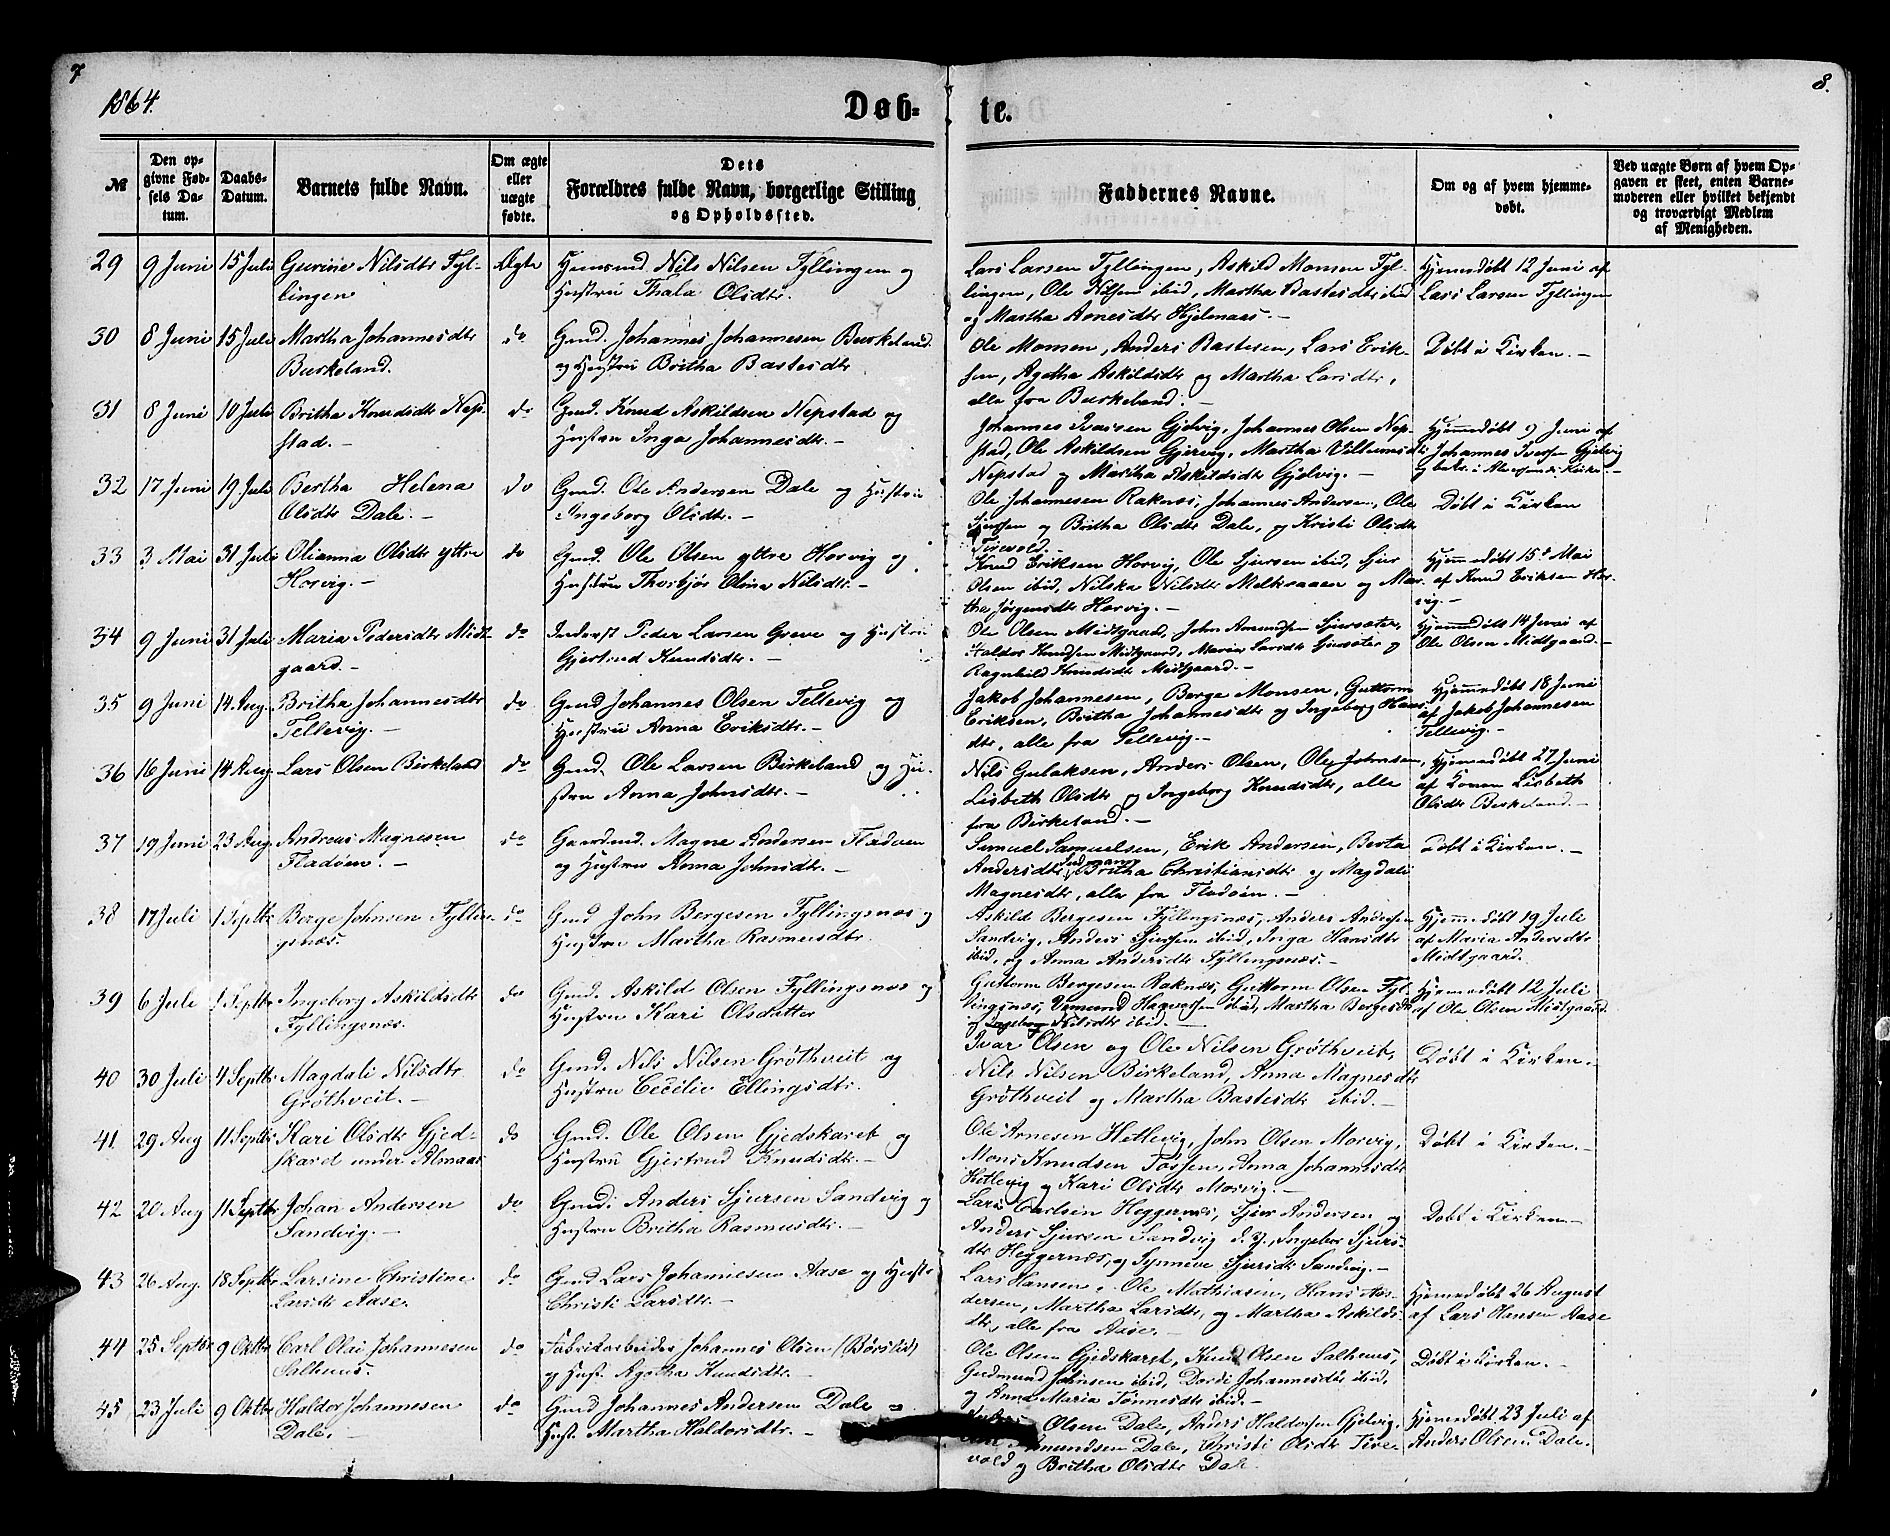 7
8.
1864.
Døb-
te.
№
Den op-
givne Fød-
sels Da-
tum.
Daabs-
Datum.
Barnets fulde Navn.
Om ægte
eller
uægte
fødte.
Dets
Forældres fulde Navn, borgerlige Stilling
og Opholdssted.
Faddernes Navne.
Om og af hvem hjemme-
døbt.
Ved uægte Børn af hvem Op-
gaven er skeet, enten Barne-
moderen eller hvilket bekjendt
og troværdigt Medlem
af Menigheden.
29 9 Juni 15 Juli Gurine Nilsdtr Tyl-
lingen
Ægte
Nils Nilsen Tyllingen og
Hustru Thala Olsdtr.
Lars Larsen Tyllingen, Askild Monsen Tyl-
lingen, Ole Nilsen ibid, Martha Bastesdtr ibid
og Martha Arnesdtr Hjelmaas.-
Hjemmedøbt 12 Juni af
Lars Larsen Tyllingen
30 8 Juni 15 Juli Martha Johannesdtr
Burkeland.
do
Gmd. Johannes Johannesen Burkeland
og Hustru Britha Bastesdtr
Ole Monsen, Anders Bastesen, Lars Erik-
sen, Agatha Askildsdtr og Martha Larsdtr,
alle fra Burkeland.-
Døbt i Kirken.-
31 8 Juni 10 Juli Britha Knudsdtr Nep-
stad.-
do
Gmd. Knud Askildsen Nepstad og
Hustru Inga Johannesdtr.-
Johannes Ivarsen Gjelvig, Johannes Olsen Nep-
stad, Ole Askildsen Gjervig, Martha Villumsdtr
Nepstad og Martha Askildsdtr Gjelvig.-
Hjemmedøbt 9 Juni af
Johannes Iversen Gjelvig
32 17 Juni 19 Juli Bertha Helena
Olsdtr Dale.-
do
Gmd. Ole Andersen Dale og Hustru
Ingeborg Olsdtr.-
Ole Johannesen Raknes, Johannes Andersen, Ole
Sjursen og Britha Olsdtr Dale, og Kristi Olsdtr
Tirevold.-
Døbt i Kirken
33 3 Mai 31 Juli Olianna Olsdtr yttre
Horvig.-
do
Gmd. Ole Olsen yttre Horvig og
Hustru Thorbjør Olina Nilsdtr.-
Knud Eriksen Horvig, Ole Sjursen ibid, Sjur
Olsen ibid, Nilska Nilsdtr Melkraaen og Mar-
tha Jørgensdtr Horvig.-
Hjemmedøbt 15de Mai
af Knud Eriksen Hor-
vig.-
34 9 Juni 31 Juli Maria Pedersdtr Midt-
gaard.-
do
Inderst Peder Larsen Greve og Hustru
Gjertrud Knudsdtr.-
Ole Olsen Midtgaard, John Amundsen Sjursæter,
Haldor Knudsen Midtgaard, Maria Larsdtr Sjursæter og
Ragnhild Knudsdtr Midtgaard.-
Hjemmedøbt 14 Juni af
Ole Olsen Midtgaard.-
35 9 Juni 14 Aug. Britha Johannesdtr
Tellevig.-
do
Gmd Johannes Olsen Tellevig og
Hustru Anna Eriksdtr.-
Jakob Johannesen, Berge Monsen, Guttorm
Eriksen, Britha Johannesdtr og Ingeborg Hans-
dtr, alle fra Tellevig.-
Hjemmedøbt 18 Juni
af Jakob Johannesen
Tellevig.-
36 16 Juni 14 Aug. Lars Olsen Birkeland
do
Gmd. Ole Larsen Birkeland og Hu-
stru Anna Johnsdtr.-
Nils Gulaksen, Anders Olsen, Ole Johnsen,
Lisbeth Olsdtr og Ingeborg Knudsdtr, alle
fra Birkeland.-
Hjemmedøbt 27 Juni
af Konen Lisbeth
Olsdtr Birkeland.-
37 19 Juni 23 Aug. Andreas Magnesen
Fladøen.-
do
Gaardmd. Magne Andersen Fladøen
og Hustru Anna Johnsdtr.-
Samuel Samuelsen, Erik Andersen, Berta
Andersdtr, Britha Christiansdtr og Magdali
Magnesdtr, alle fra Fladøen.-
Døbt i Kirken.-
38 17 Juli 1 Septbr Berge Johnsen Tyllin-
gsnæs.
do
Gmd John Bergesen Tyllingsnæs og
Hustru Martha Rasmusdtr.
Askild Bergesen Tyllingsnæs, Anders Andersen
Sandvig, Anders Sjursen ibid, Inga Hansdtr
ibid, og Anna Andersdtr Tyllingsnæs.-
Hjemmedøbt 19 Juli
af Maria Andersdtr
Midtgaard.
39 6 Juli 1 Septbr Ingeborg Askildsdtr
Tyllingsnæs.
do
Gmd. Askild Olsen Tyllingsnæs og
Hustru Kari Olsdatter
Guttorm Bergesen Raknes, Guttorm Olsen Tyl-
lingsnæs, ibid, Martha Bergesdtr
og Ingeborg Nilsdtr ibid.-
Hjemmedøbt 12 Juli
af Ole Olsen Midtgaard
40 30 Juli 4 Septbr Magdali Nilsdtr
Grøthveit.-
do
Gmd. Nils Nilsen Grøthveit og
Hustru Cecilie Ellingsdtr.
Ivar Olsen og Ole Nilsen Grøthveit,
Nils Nilsen Birkeland, Anna Magnesdtr
Grøthveit og Martha Bastesdtr ibid.-
Døbt i Kirken.
41 29 Aug 11 Septbr Kari Olsdtr Gjed-
skaret under Almaas
do
Gmd. Ole Olsen Gjedskaret og
Hustru Gjertrud Knudsdtr.-
Ole Arnesen Hetlevig, John Olsen Morvig,
Mons Knudsen Tossen, Anna Johannesdtr
Hetlevig og Kari Olsdtr Morvig.-
Døbt i Kirken.-
42 20 Aug 11 Septbr Johan Andersen
Sandvig.-
do
Gmd. Anders Sjursen Sandvig og
Hustru Britha Rasmusdtr.-
Lars Carlsen Heggernæs, Sjur Andersen og
Anders Sjursen Sandvig Ingebor Sjurs-
dtr Heggernæs, og Synneve Sjursdtr Sandvig.-
Døbt i Kirken.-
43 26 Aug. 18 Septbr Larsine Christine
Larsdtr Aase.
do
Gmd Lars Johannesen Aase og Hustr
Christi Larsdtr.-
Lars Hansen, Ole Mathiasen, Hans An-
dersen, Martha Larsdtr, og Martha Askilds-
dtr, alle fra Aase.-
Hjemmedøbt 26 August
af Lars Hansen Aase
44 25 Septbr 9 Oktbr Carl Olai Johannesen
Salhus.
do
Fabrikarbeider Johannes Olsen (Børslid)
og Hust. Agatha Knudsdtr.-
Ole Olsen Gjedskaret, Knud Olsen Salhus,
Gudmund Johnsen ibid, Dordi Johannesdtr ibid,
og Anna Maria Tønnesdtr ibid.-
Døbt i Kirken.-
45 23 Juli 9 Oktbr Haldor Johannesen
Dale.
do
Gmd Johannes Andersen Dale og
Hust. Martha Haldorsdtr.-
Olsen Dale, Anders Haldorsen Gjelvig,
Amundsen Dale, Christi Olsdtr Tire-
vold og Britha Olsdtr Dale
Hjemmedøbt 23 Juli af
Anders Olsen Dale.